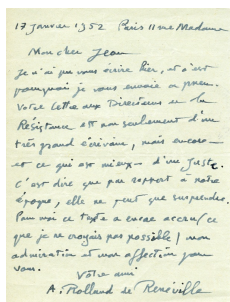 17 janvier 1952 Paris 11 rue Madame
Mon cher Jean
Je n'ai pu vous écrire hier, et c'est
pourquoi je vous envoie ce pneu.
Votre Lettre aux Directeurs de la
Résistance est non seulement d'un
très grand écrivain, mais encore —
et ce qui est mieux — d'un Juste.
C'est dire que par rapport à notre
époque, elle ne peut que surprendre.
Pour moi ce texte a encore accru (ce
que je ne croyais pas possible) mon
admiration et mon affection pour
vous.
Votre ami
A. Rolland de Renéville